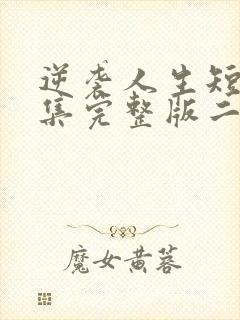 逆袭人生短
集完整版二
魔女黄蓉